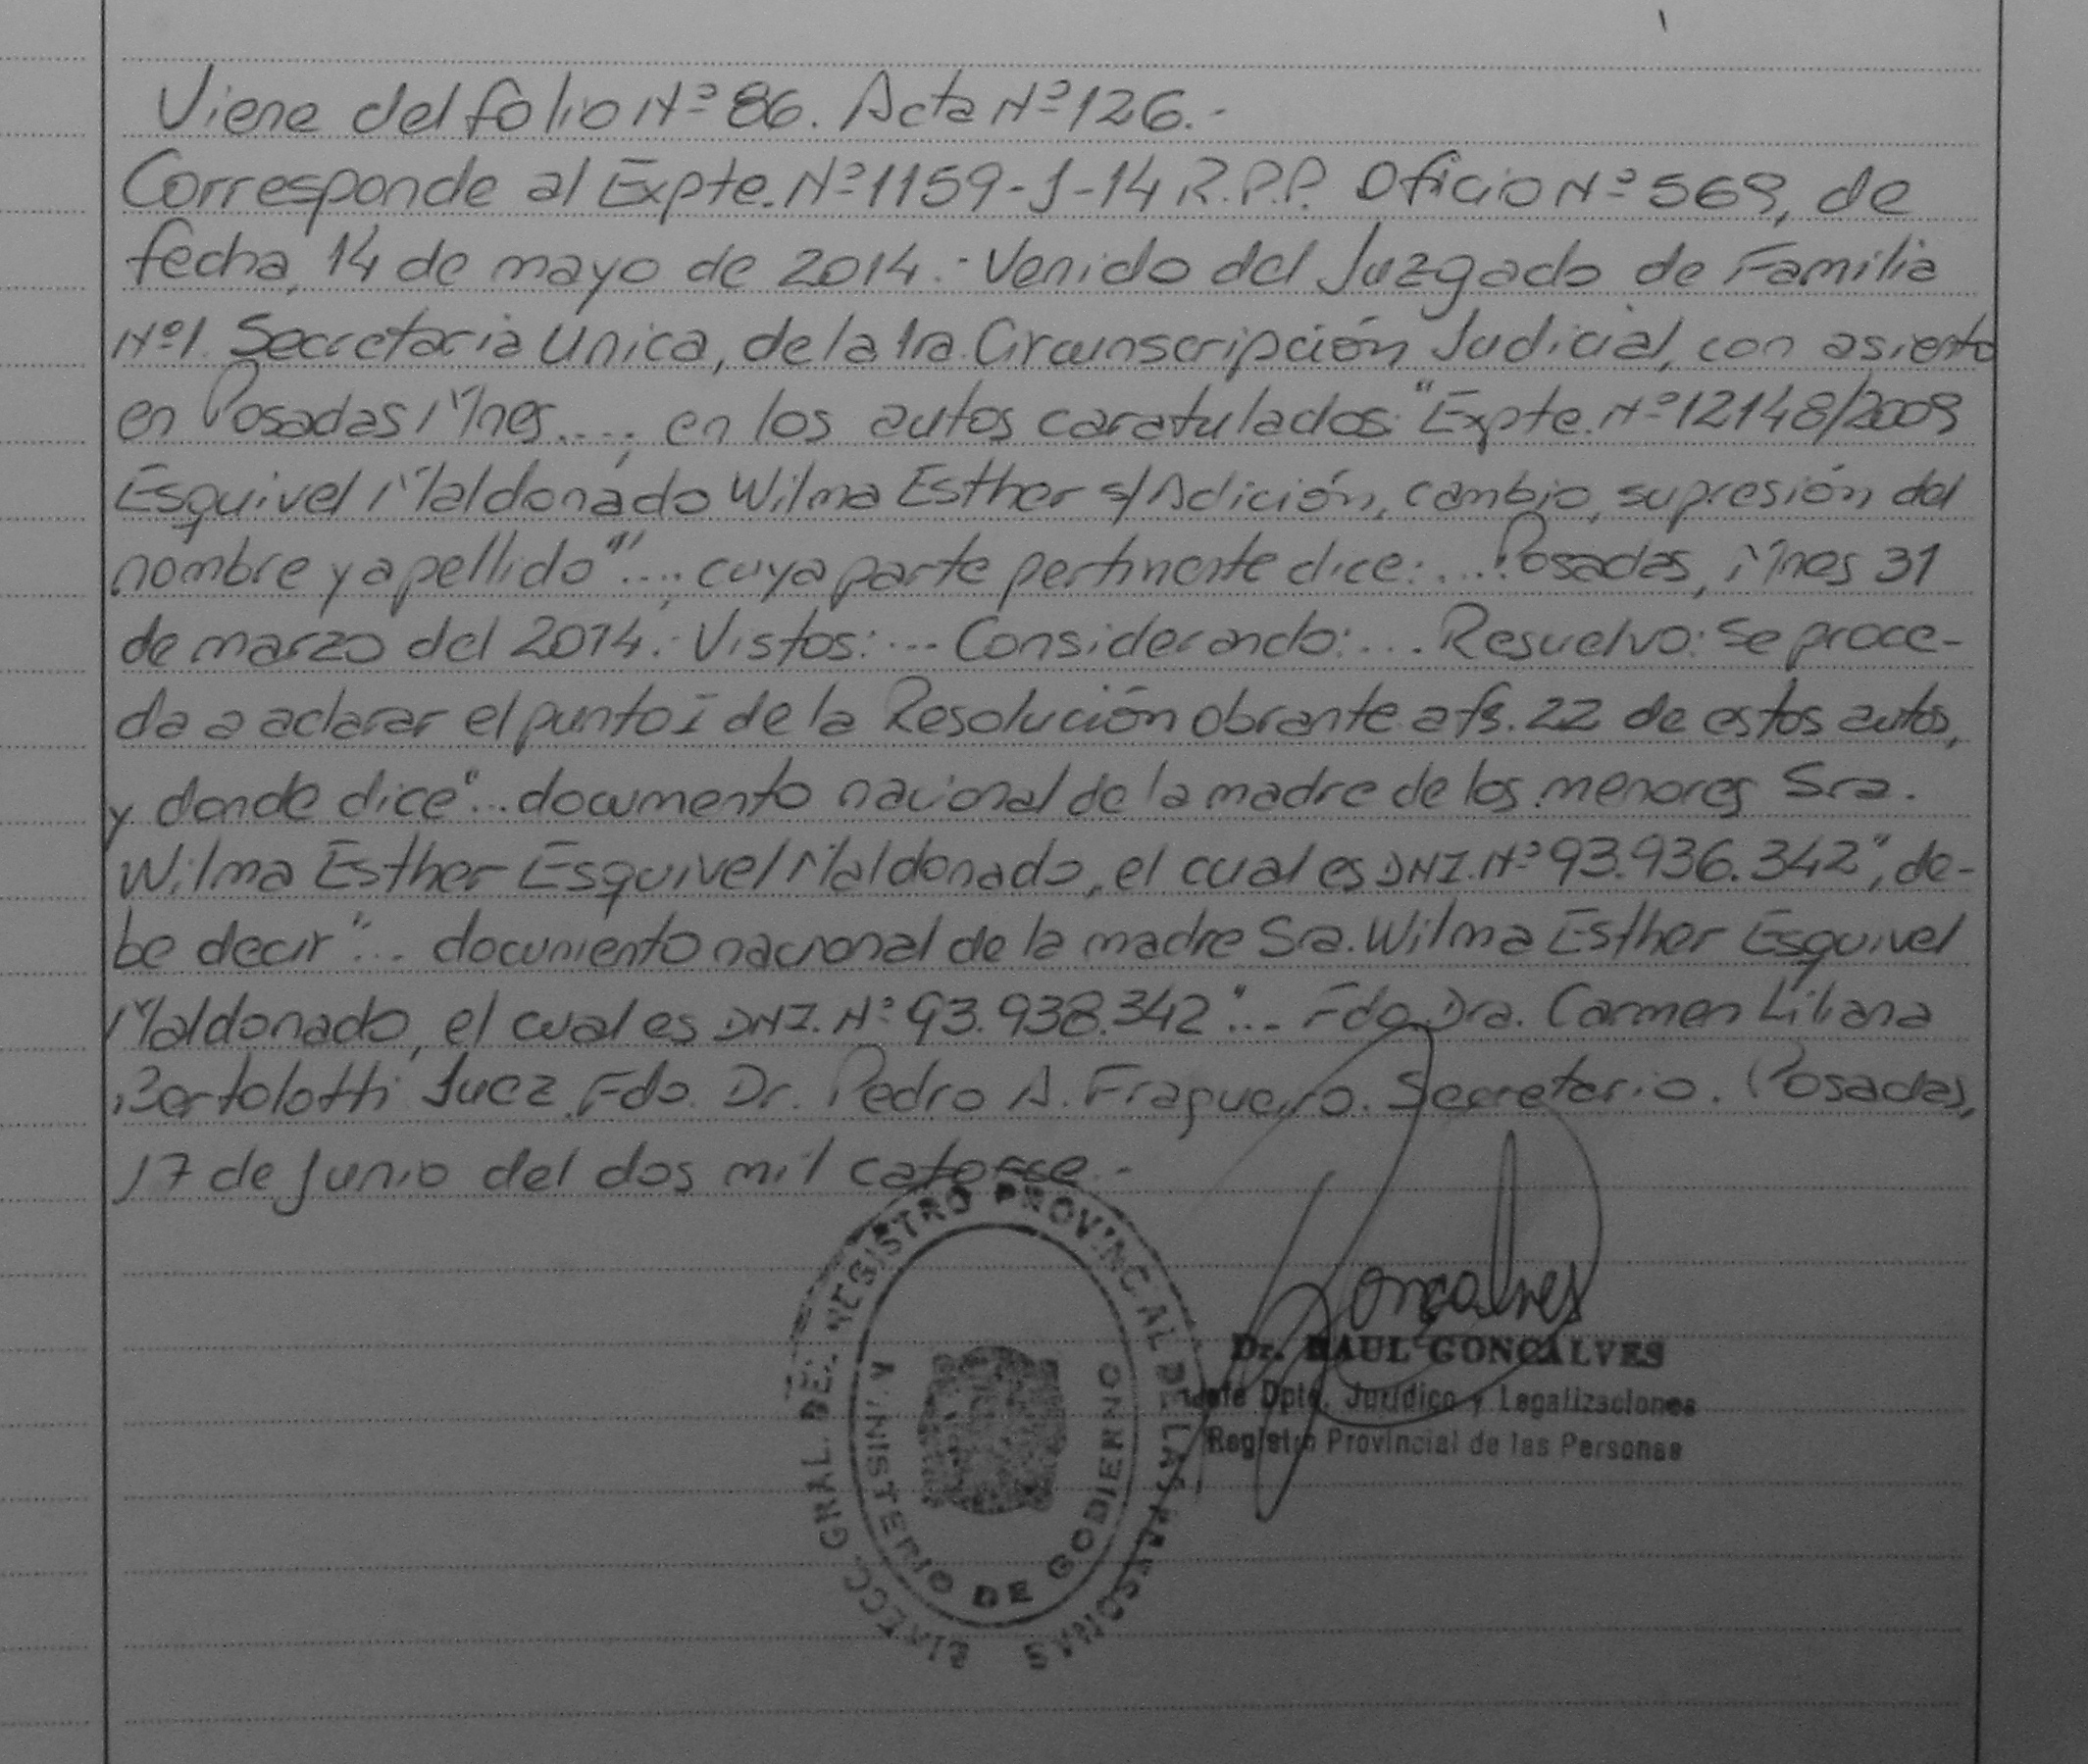 Viene del folio Nº 86. Acta Nº 126.-
Corresponde al Expte. Nº 1159-J-14 R.P.P. Oficio Nº 569, de
fecha, 14 de mayo de 2014.- Venido del Juzgado de Familia
Nº1. Secretaria Unica, de la 1ra. Circunscripción Judicial, con asiento
en Posadas Mnes....; en los autos caratulados: "Expte. Nº 12148/2009
Esquivel Maldonado Wilma Esther s/Adición, cambio, supresión del
nombre y apellido"....; cuya parte pertinente dice:....Posadas, Mnes 31
de marzo del 2014.- Vistos:... Considerando:... Resuelvo: Se proce-
da a aclarar el punto I de la Resolución obrante a fs. 22 de estos autos,
y donde dice "...documento nacional de la madre de los menores Sra.
Wilma Esther Esquivel Maldonado, el cual es DNI. Nº 93.936.342", de-
be decir "... documento nacional de la madre Sra. Wilma Esther Esquivel
Maldonado, el cual es DNI. Nº 93.938.342"... Fdo. Dra. Carmen Liliana
Bertolotti Juez. Fdo. Dr. Pedro A. Fragueiro. Secretario. Posadas,
17 de Junio del dos mil catorce.-
DIRECC. GRAL. DEL REGISTRO PROVINCIAL DE LAS PERSONAS
MINISTERIO DE GOBIERNO
Goncalves
Dr. RAUL GONCALVES
Jefe Dpto. Jurídico y Legalizaciones
Registro Provincial de las Personas